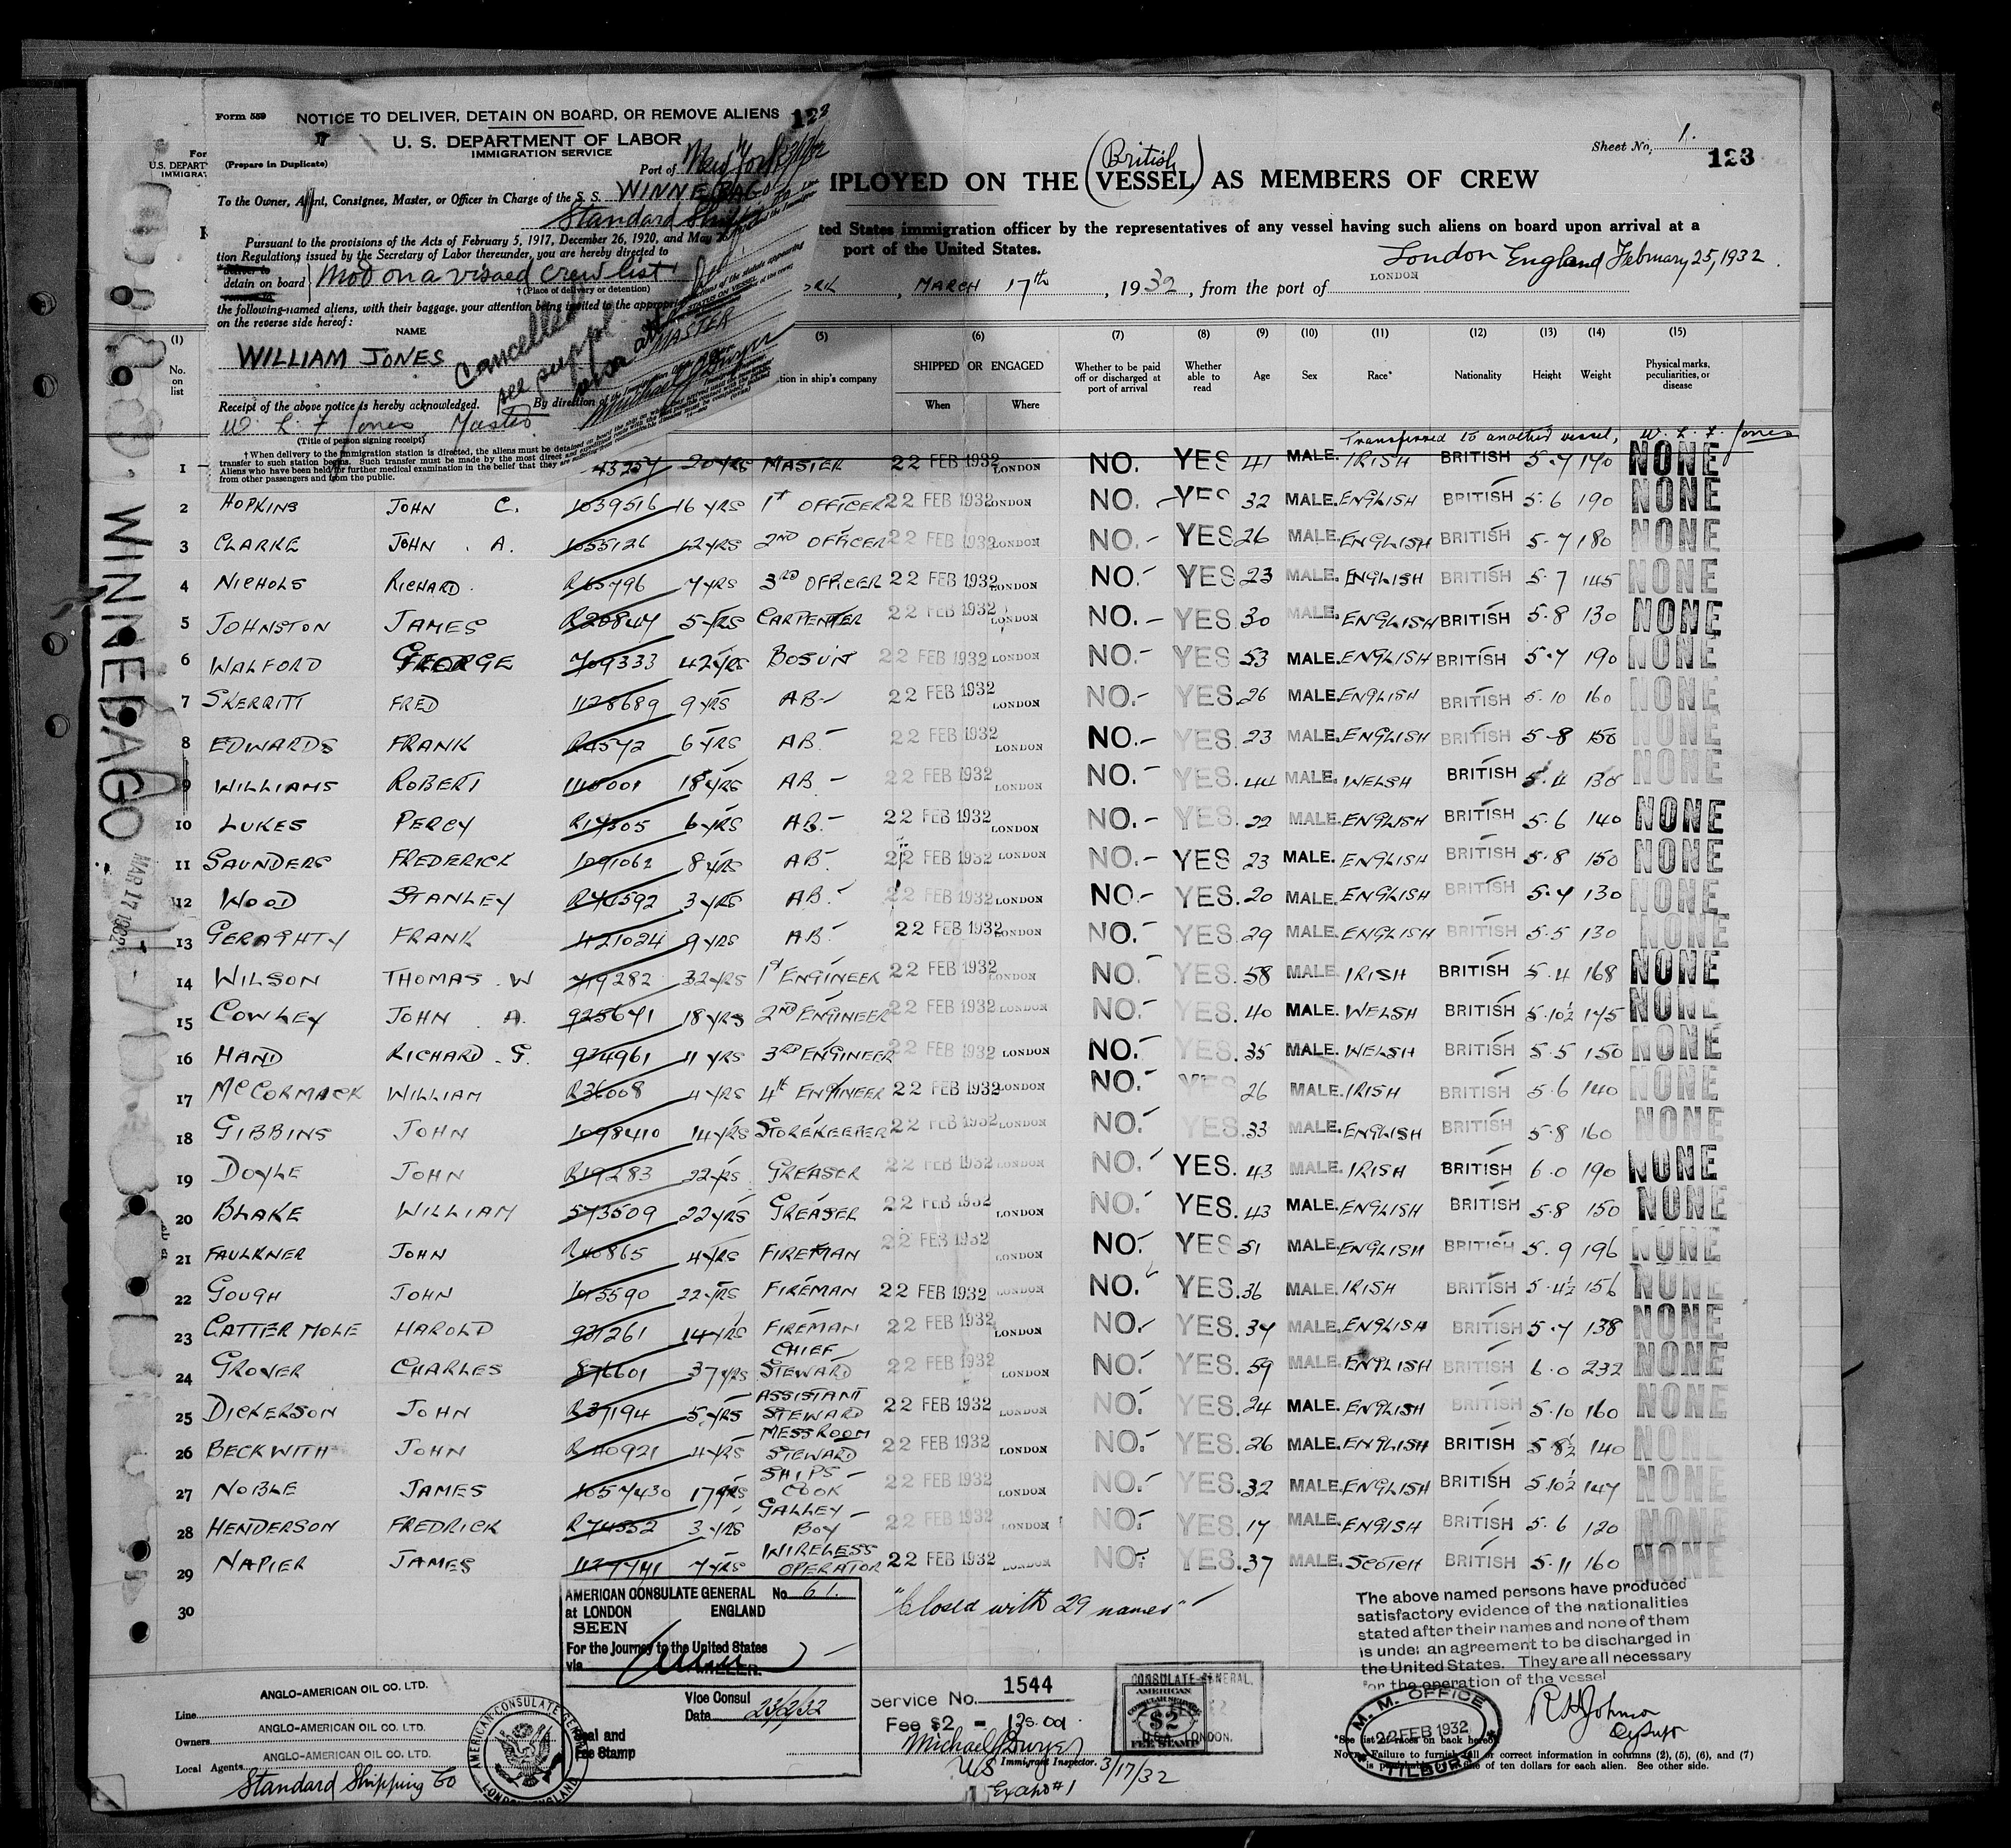 Form 559 NOTICE TO DELIVER, DETAIN ON BOARD, OR REMOVE ALIENS 122
U. S. DEPARTMENT OF LABOR
IMMIGRATION SERVICE
(Prepare in Duplicate)
Port of New York
To the Owner, Agent, Consignee, Master, or Officer in Charge of the S. S. WINNEBAGO
Standard
Pursuant to the provisions of the Acts of February 5, 1917, December 26, 1920, and May
tion Regulations issued by the Secretary of Labor thereunder, you are hereby directed to
deliver to
detain on board
Mod on a visaed crew list
† (Place of delivery or detention)
the following-named aliens, with their baggage, your attention being invited to the
on the reverse side hereof:
NAME
WILLIAM JONES
Cancelled
see suppl
MASTER
Receipt of the above notice is hereby acknowledged.
By direction of
W. L. F Jones Master
(Title of person signing receipt)
† When delivery to the immigration station is directed, the aliens must be
transfer to such station begins. Such transfer must be made by the most direct
Aliens who have been held for further medical examination in the belief that they
from other passengers and from the public.
For
U.S. DEPART
IMMIGRA
Sheet No. 1.
123
(British)
IPLOYED ON THE (VESSEL) AS MEMBERS OF CREW
ted States immigration officer by the representatives of any vessel having such aliens on board upon arrival at a
port of the United States.
London England February 25, 1932
ORK, MARCH 17th, 1932, from the port of LONDON
(1) (5) (6) (7) (8) (9) (10) (11) (12) (13) (14) (15)
No. on list
tion in ship's company
SHIPPED OR ENGAGED
When Where
Whether to be paid off or discharged at port of arrival
Whether able to read
Age Sex Race* Nationality Height Weight
Physical marks, peculiarities, or disease
Transferred to another vessel, W. L. F. Jones
1 43257 20 YRS MASTER 22 FEB 1932 LONDON NO. YES 41 MALE. IRISH BRITISH 5-7 170 NONE
2 HOPKINS JOHN C. 1039516 16 YRS 1st OFFICER 22 FEB 1932 LONDON NO. YES 32 MALE. ENGLISH BRITISH 5-6 190 NONE
3 CLARKE JOHN. A. 1055126 12 YRS 2ND OFFICER 22 FEB 1932 LONDON NO. YES 26 MALE. ENGLISH BRITISH 5-7 180 NONE
4 NICHOLS RICHARD. R65796 7 YRS 3RD OFFICER 22 FEB 1932 LONDON NO. YES 23 MALE. ENGLISH BRITISH 5-7 145 NONE
5 JOHNSTON JAMES R20847 5 YRS CARPENTER 22 FEB 1932 LONDON NO. YES. 30 MALE. ENGLISH BRITISH 5-8 130 NONE
6 WALFORD GEORGE 709333 42 YRS BOSUN 22 FEB 1932 LONDON NO. YES 53 MALE. ENGLISH BRITISH 5-7 190 NONE
7 SKERRITT FRED 1128689 9 YRS AB 22 FEB 1932 LONDON NO. YES. 26 MALE. ENGLISH BRITISH 5-10 160 NONE
8 EDWARDS FRANK R4572 6 YRS AB 22 FEB 1932 LONDON NO. YES. 23 MALE. ENGLISH BRITISH 5-8 150 NONE
9 WILLIAMS ROBERT 1110001 18 YRS AB 22 FEB 1932 LONDON NO. YES. 44 MALE. WELSH BRITISH 5-4 130 NONE
10 LUKES PERCY R14505 6 YRS AB 22 FEB 1932 LONDON NO. YES. 22 MALE. ENGLISH BRITISH 5-6 140 NONE
11 SAUNDERS FREDERICK 1091062 8 YRS AB 22 FEB 1932 LONDON NO. YES 23 MALE. ENGLISH BRITISH 5-8 150 NONE
12 WOOD STANLEY 3 YRS AB. 22 FEB 1932 LONDON NO. YES. 20 MALE. ENGLISH BRITISH 5-7 130 NONE
13 GERAGHTY FRANK 421024 9 YRS AB 22 FEB 1932 LONDON NO. YES. 29 MALE. ENGLISH BRITISH 5-5 130 NONE
14 WILSON THOMAS. W 719282 32 YRS 1st ENGINEER 22 FEB 1932 LONDON NO. YES. 58 MALE. IRISH BRITISH 5-4 168 NONE
15 COWLEY JOHN. A. 925671 18 YRS 2ND ENGINEER 22 FEB 1932 LONDON NO. YES. 40 MALE. WELSH BRITISH 5-10½ 175 NONE
16 HAND RICHARD. G. 974961 11 YRS 3RD ENGINEER 22 FEB 1932 LONDON NO. YES. 35 MALE. WELSH BRITISH 5-5 150 NONE
17 McCORMACK WILLIAM R36008 4 YRS 4th ENGINEER 22 FEB 1932 LONDON NO. YES 26 MALE. IRISH BRITISH 5-6 140 NONE
18 GIBBINS JOHN 1098410 14 YRS STOREKEEPER 22 FEB 1932 LONDON NO. YES. 33 MALE. ENGLISH BRITISH 5-8 160 NONE
19 DOYLE JOHN R19283 22 YRS GREASER 22 FEB 1932 LONDON NO. YES. 43 MALE. IRISH BRITISH 6-0 190 NONE
20 BLAKE WILLIAM 573509 22 YRS GREASER 22 FEB 1932 LONDON NO. YES. 43 MALE. ENGLISH BRITISH 5-8 150 NONE
21 FAULKNER JOHN R40865 4 YRS FIREMAN 22 FEB 1932 LONDON NO. YES 51 MALE. ENGLISH BRITISH 5-9 196 NONE
22 GOUGH JOHN 1015590 22 YRS FIREMAN 22 FEB 1932 LONDON NO. YES. 36 MALE. IRISH BRITISH 5-4½ 156 NONE
23 CATTERMOLE HAROLD 931261 14 YRS FIREMAN 22 FEB 1932 LONDON NO. YES. 37 MALE. ENGLISH BRITISH 5-7 138 NONE
24 GROVER CHARLES 876601 37 YRS CHIEF STEWARD 22 FEB 1932 LONDON NO. YES. 59 MALE. ENGLISH BRITISH 6-0 232 NONE
25 DICKERSON JOHN R37194 5 YRS ASSISTANT STEWARD 22 FEB 1932 LONDON NO. YES. 24 MALE. ENGLISH BRITISH 5-10 160 NONE
26 BECKWITH JOHN R40921 4 YRS MESSROOM STEWARD 22 FEB 1932 LONDON NO. YES. 26 MALE. ENGLISH BRITISH 5 8½ 140 NONE
27 NOBLE JAMES 1057430 17 YRS SHIPS COOK 22 FEB 1932 LONDON NO. YES. 32 MALE. ENGLISH BRITISH 5-10½ 147 NONE
28 HENDERSON FREDRICK R74352 3 YRS GALLEY BOY 22 FEB 1932 LONDON NO. YES. 17 MALE. ENGISH BRITISH 5-6 120 NONE
29 NAPIER JAMES 7 YRS WIRELESS OPERATOR 22 FEB 1932 LONDON NO. YES. 37 MALE. SCOTCH BRITISH 5-11 160 NONE
30
WINNEBAGO
MAR 17 1932
AMERICAN CONSULATE GENERAL No. 61.
at LONDON ENGLAND
SEEN
For the Journey to the United States
via
Vice Consul
Date 23/2/32
Seal and
Fee Stamp
"Closed with 29 names"
The above named persons have produced
satisfactory evidence of the nationalities
stated after their names and none of them
is under an agreement to be discharged in
the United States. They are all necessary
for the operation of the vessel
ANGLO-AMERICAN OIL CO. LTD.
Line
ANGLO-AMERICAN OIL CO. LTD.
Owners
ANGLO-AMERICAN OIL CO. LTD.
Local Agents
Standard Shipping Co
AMERICAN CONSULATE GENERAL
LONDON, ENGLAND
Service No. 1544
Fee $2 =
Michael J Dwyer
US Immigrant Inspector. 3/17/32
CONSULATE-GENERAL,
AMERICAN
CONSULAR SERVICE
$2
FEE STAMP
LONDON.
M. M. OFFICE
22 FEB 1932
TILBURY
R H Johnson
*See list of races on back hereof
Note.—Failure to furnish full or correct information in columns (2), (5), (6), and (7)
is of ten dollars for each alien. See other side.